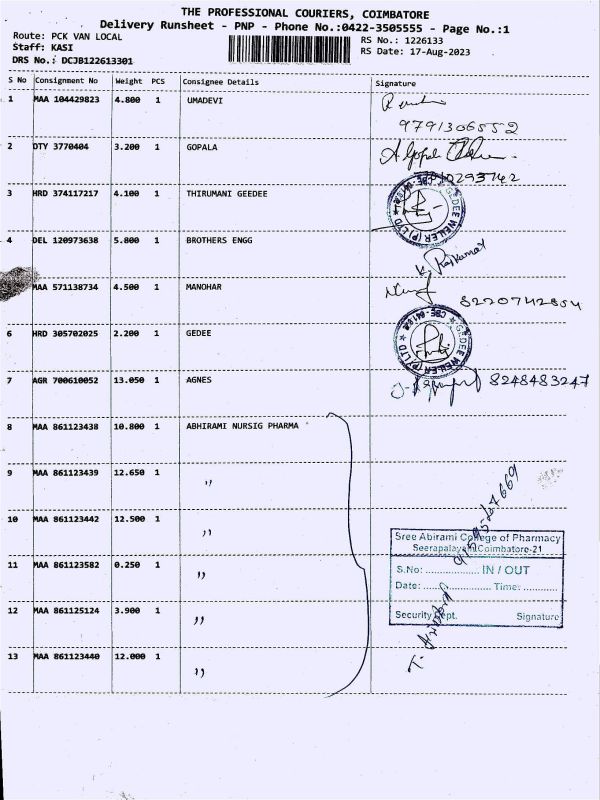 THE PROFESSIONAL COURIERS, COIMBATORE
Delivery Runsheet - PNP - Phone No.:0422-3505555 - Page No.:1
Route: PCK VAN LOCAL
RS No.: 1226133
Staff: KASI
RS Date: 17-Aug-2023
DRS No.: DCJB122613301
S No Consignment No Weight PCS Consignee Details Signature
1 MAA 104429823 4.800 1 UMADEVI
9791306552
2 DTY 3770404 3.200 1 GOPALA
A Gopal
3 HRD 374117217 4.100 1 THIRUMANI GEEDEE
GEDEE WEILER (P) LTD
4 DEL 120973638 5.800 1 BROTHERS ENGG
K. Rajkumar
MAA 571138734 4.500 1 MANOHAR
8220742854
6 HRD 305702025 2.200 1 GEDEE
GEDEE WEILER (P) LTD
7 AGR 700610052 13.050 1 AGNES
8248483247
8 MAA 861123438 10.800 1 ABHIRAMI NURSIG PHARMA
9 MAA 861123439 12.650 1 ,,
10 MAA 861123442 12.500 1 ,,
Sree Abirami College of Pharmacy
Seerapalayam Coimbatore-21
11 MAA 861123582 0.250 1 ,,
S.No: .................. IN / OUT
Date: ...................... Time: ............
12 MAA 861125124 3.900 1 ,,
Security Dept. Signature
13 MAA 861123440 12.000 1 ,,